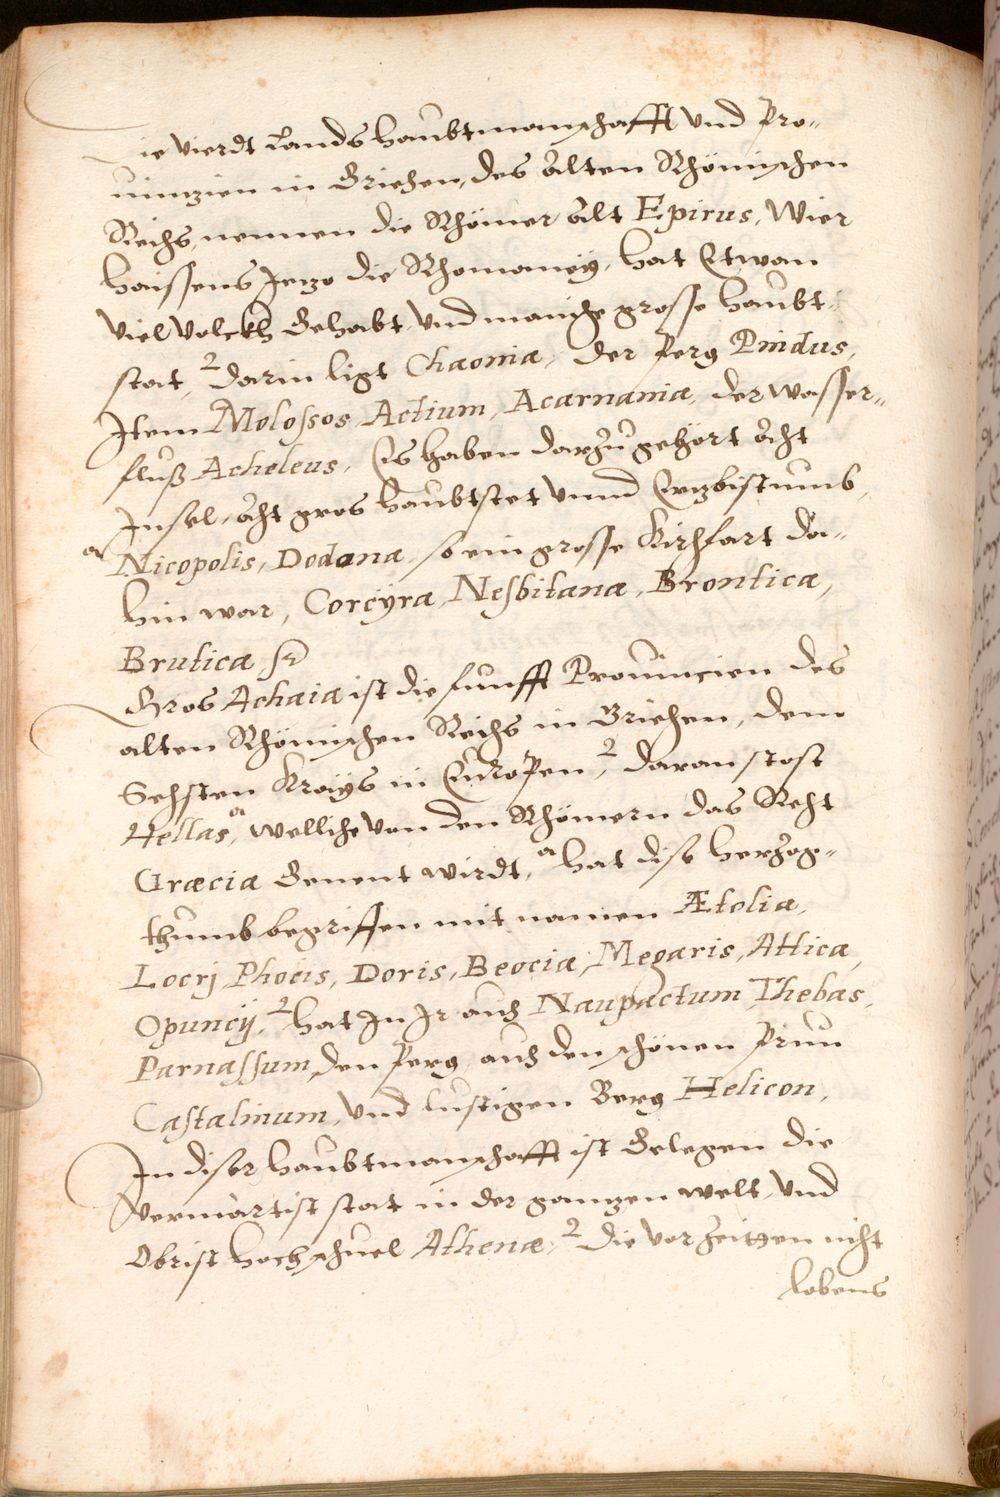 Die vierdt Landshaubtmanschafft vnd Pro=
uintzien in Griechen, des alten Rhömischen
Reichs, nennen die Rhömer alt Epirus, Wier
haissens Jetzo die Rhomaney, hat Etwan
viel Volckh Gehabt, Vnd manche grosse haubt=
stat, 2 darin ligt Chaonia, der Perg Pindus,
Item Molossos, Actium, Acarnania, der wasser=
fluß Acheleus, Es haben darzu gehört acht
Insel, acht gros haubtstet vnnd Ertzbistumb,
a Nicopolis, Dodona, so ein grosse Kirchfart da=
hin war, Corcyra, Nesbitana, Brontica,
Brutica, &c.
Gros Achaia ist die funfft Prouincien des
alten Rhömischen Reichs in Griechen, dem
Sechsten Krays in Europen, 2 daran stost
Hellas, a welliche von den Rhömern das Recht
Græcia Genent wirdt, a hat dise hertzog=
thumb begriffen mit namen Ætolia,
Locrj, Phocis, Doris, Beocia, Megaris, Attica,
Opuncij, 2 hat In Ir auch Naupactum, Thebas,
Parnassum, den Perg, auch den schönen Prun
Castalinum, Vnd lustigen Berg Helicon,
In diser haubtmanschafft ist Gelegen die
Vermartist stat in der gantzen welt, Vnd
Obrist hochschuel Athenæ, 2 die vor Zeitten nicht
lobens